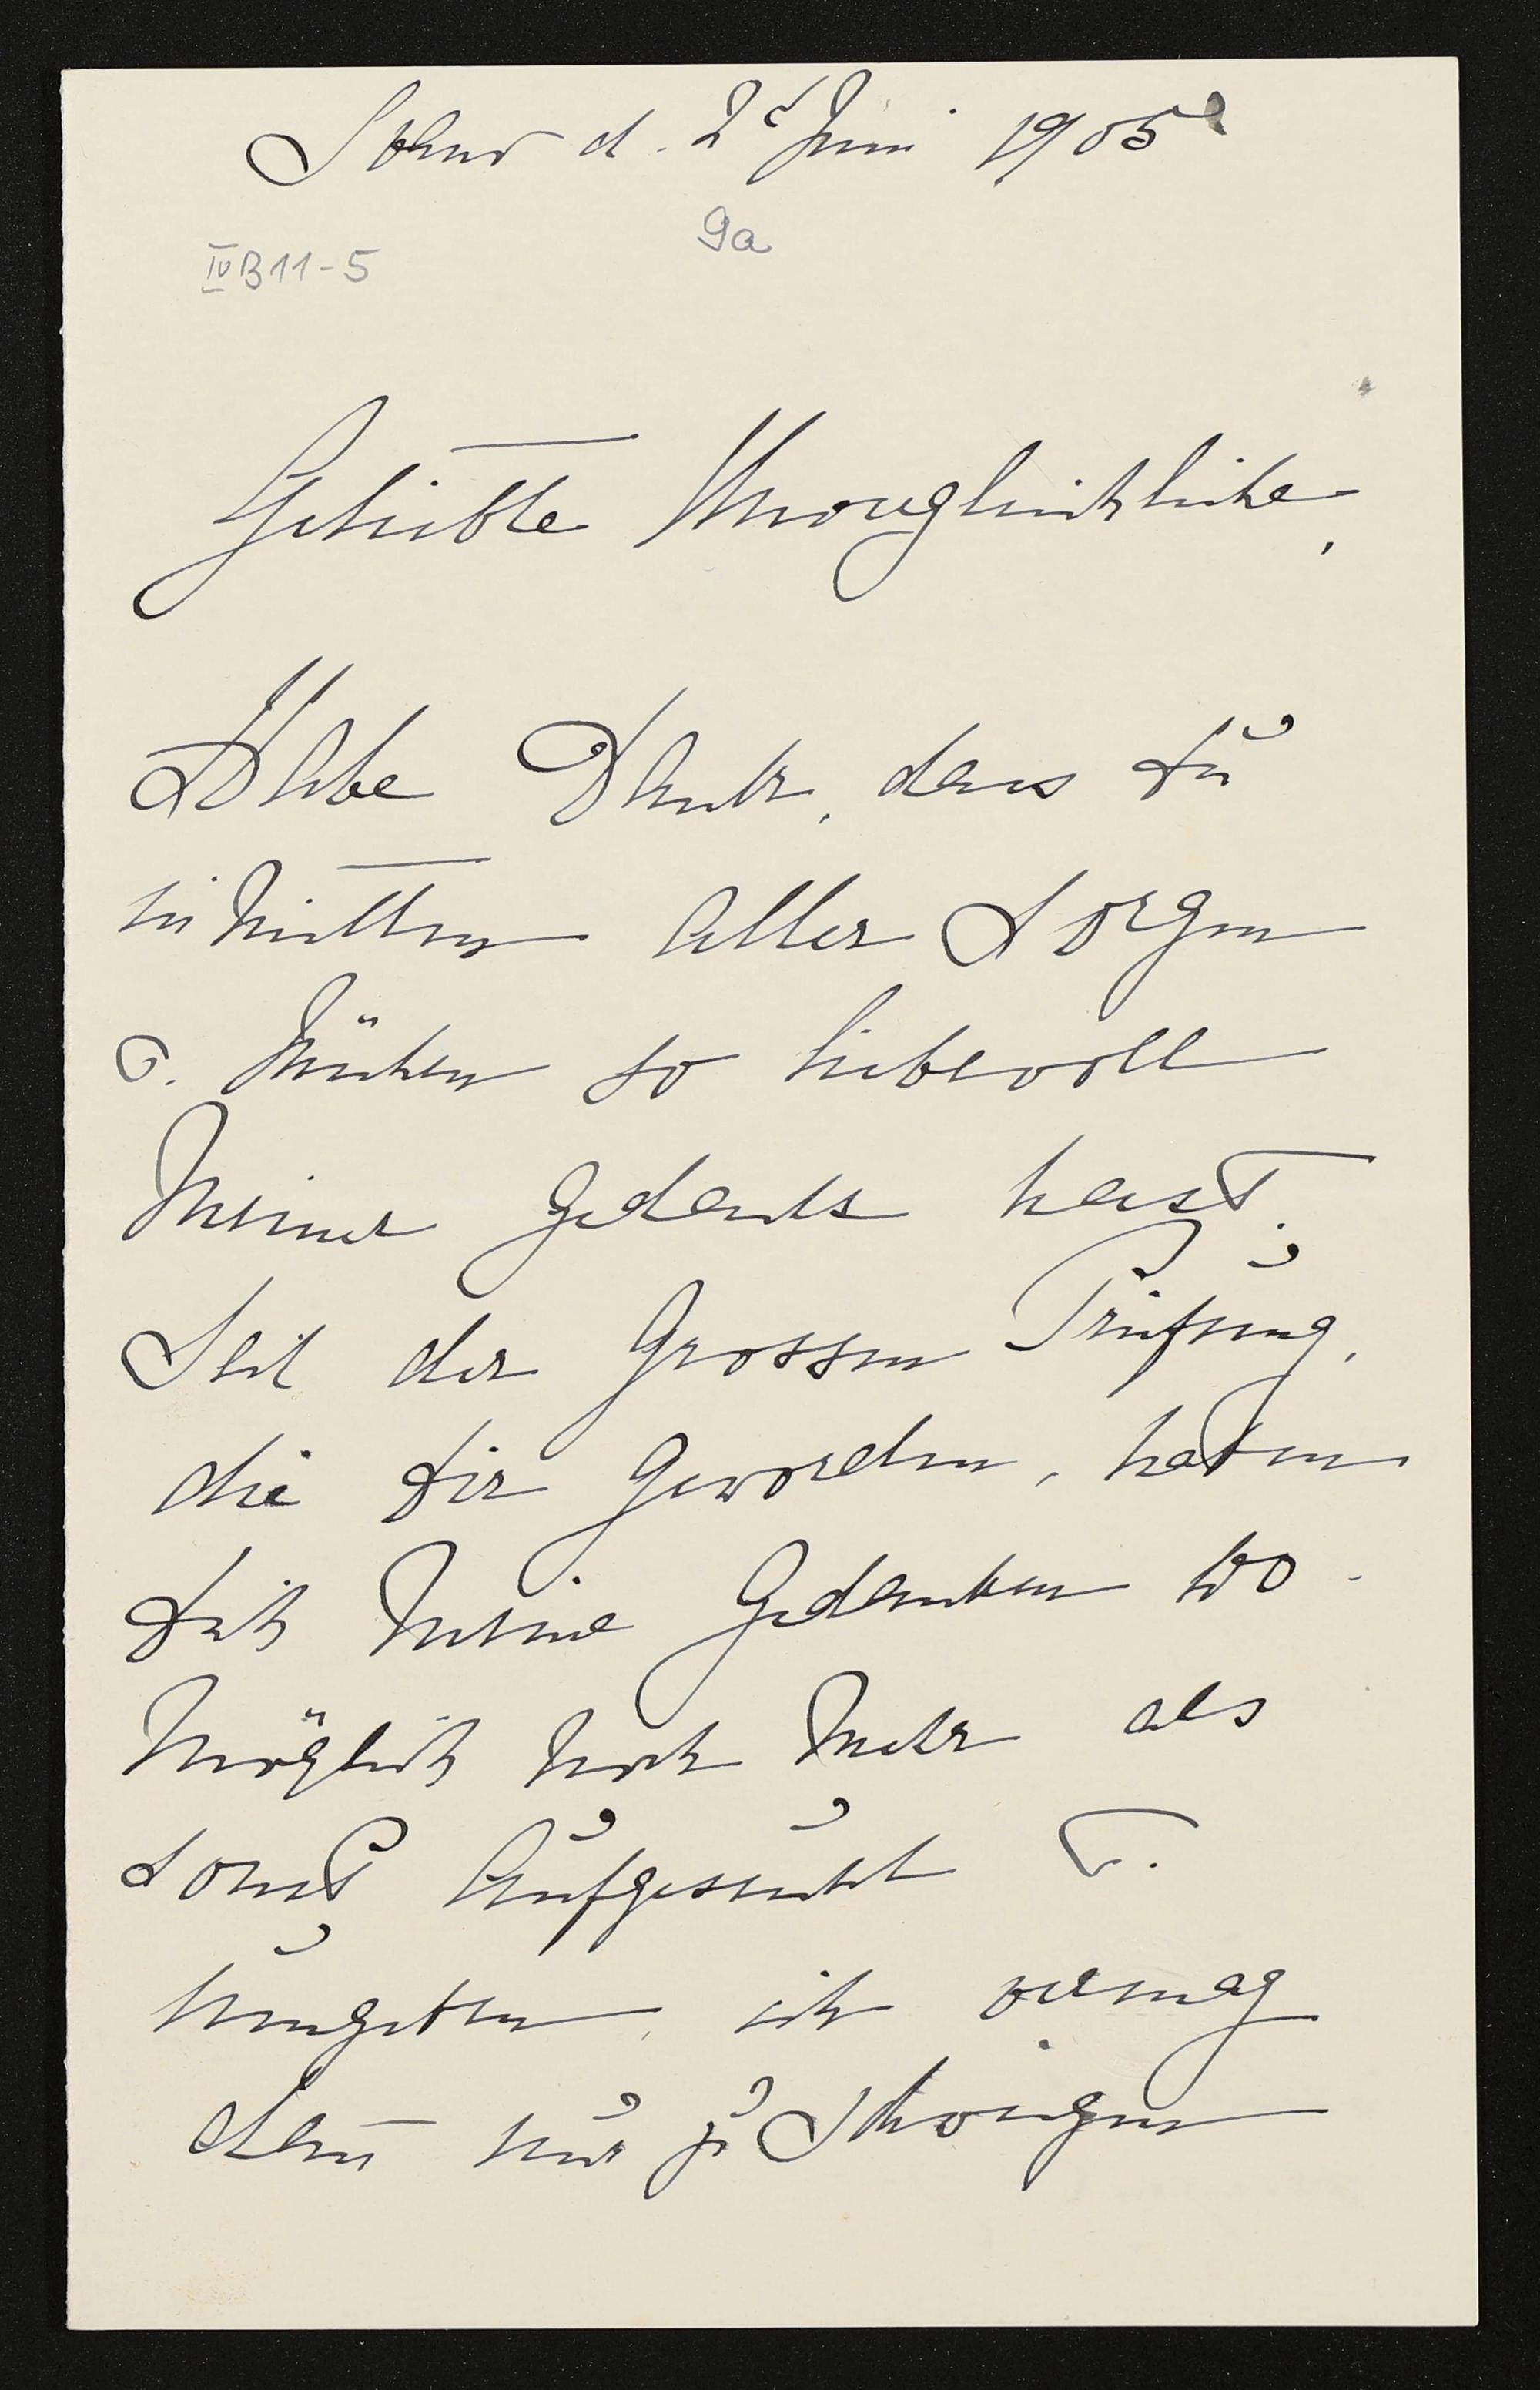 d. 2t Juni 1905
9a
IV B 11-5
Geliebte Unvergleichliche,
Habe Dank, dass Du
in mitten aller Sorgen
u. Mühen so liebevoll
Meiner gedacht hast.
Seit der Grossen Prüfung,
die Dir geworden, haben
Dich Meine Gedanken wo-
möglich noch Mehr als
Sonst Aufgesucht u.
umgeben, ich vermag
dañ nur zu Schweigen